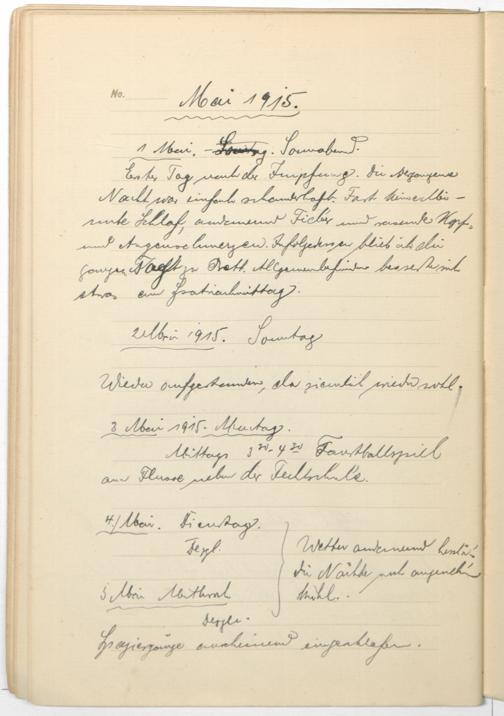 No.
Mai 1915.
1 Mai. Sonntag. Sonnabend.
Erster Tag nach der Impfung. Die vergangene
Nacht war einfach schauderhaft. Fast keine Mi-
nute Schlaf, andauernd Fieber und rasende Kopf-
und Augenschmerzen. Infolgedessen blieb ich den
ganzen Tag zu Bett. Allgemeinbefinden besserte sich
etwas am Spätnachmittag.
2 Mai 1915. Sonntag
Wieder aufgestanden, da ziemlich wieder wohl.
3 Mai 1915. Montag.
Mittags 3 30 - 4 30 Faustballspiel
am Flusse neben der Fechtschule.
4/ Mai. Dienstag.
Desgl.
5 Mai Mittwoch
Desgl.
Wetter andauernd
die Nächte noch angenehm
kühl.
Spaziergänge anscheinend eingeschlafen.